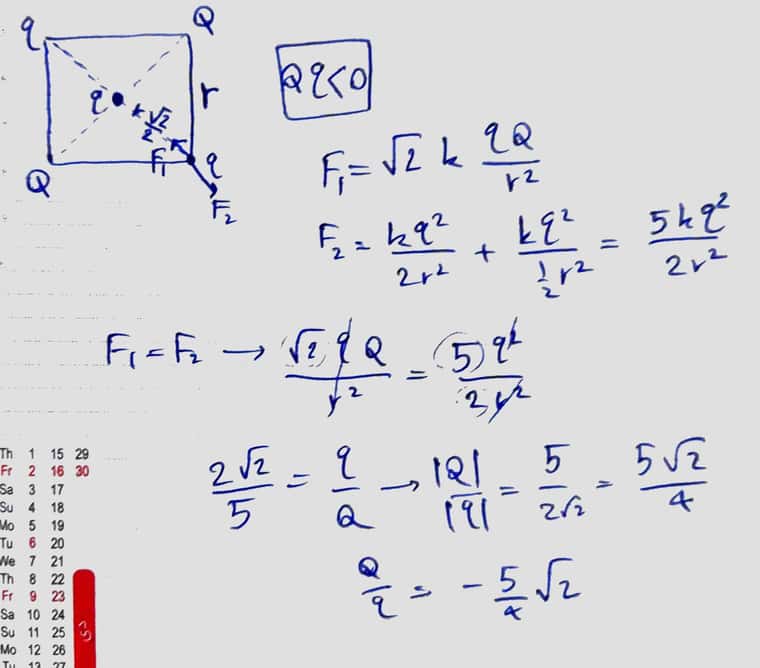 q Q
Qq<0
q r
r √2/2
F₁ q
Q
F₂
F₁ = √2 k qQ/r²
F₂ = kq²/2r² + kq²/½r² = 5kq²/2r²
F₁ = F₂ → √2 q Q/r² = 5q²/2r²
2√2/5 = q/Q → |Q|/|q| = 5/2√2 = 5√2/4
Q/q = -5/4 √2
Th 1 15 29
Fr 2 16 30
Sa 3 17
Su 4 18
Mo 5 19
Tu 6 20
We 7 21
Th 8 22
Fr 9 23
Sa 10 24
Su 11 25
Mo 12 26
Tu 13 27